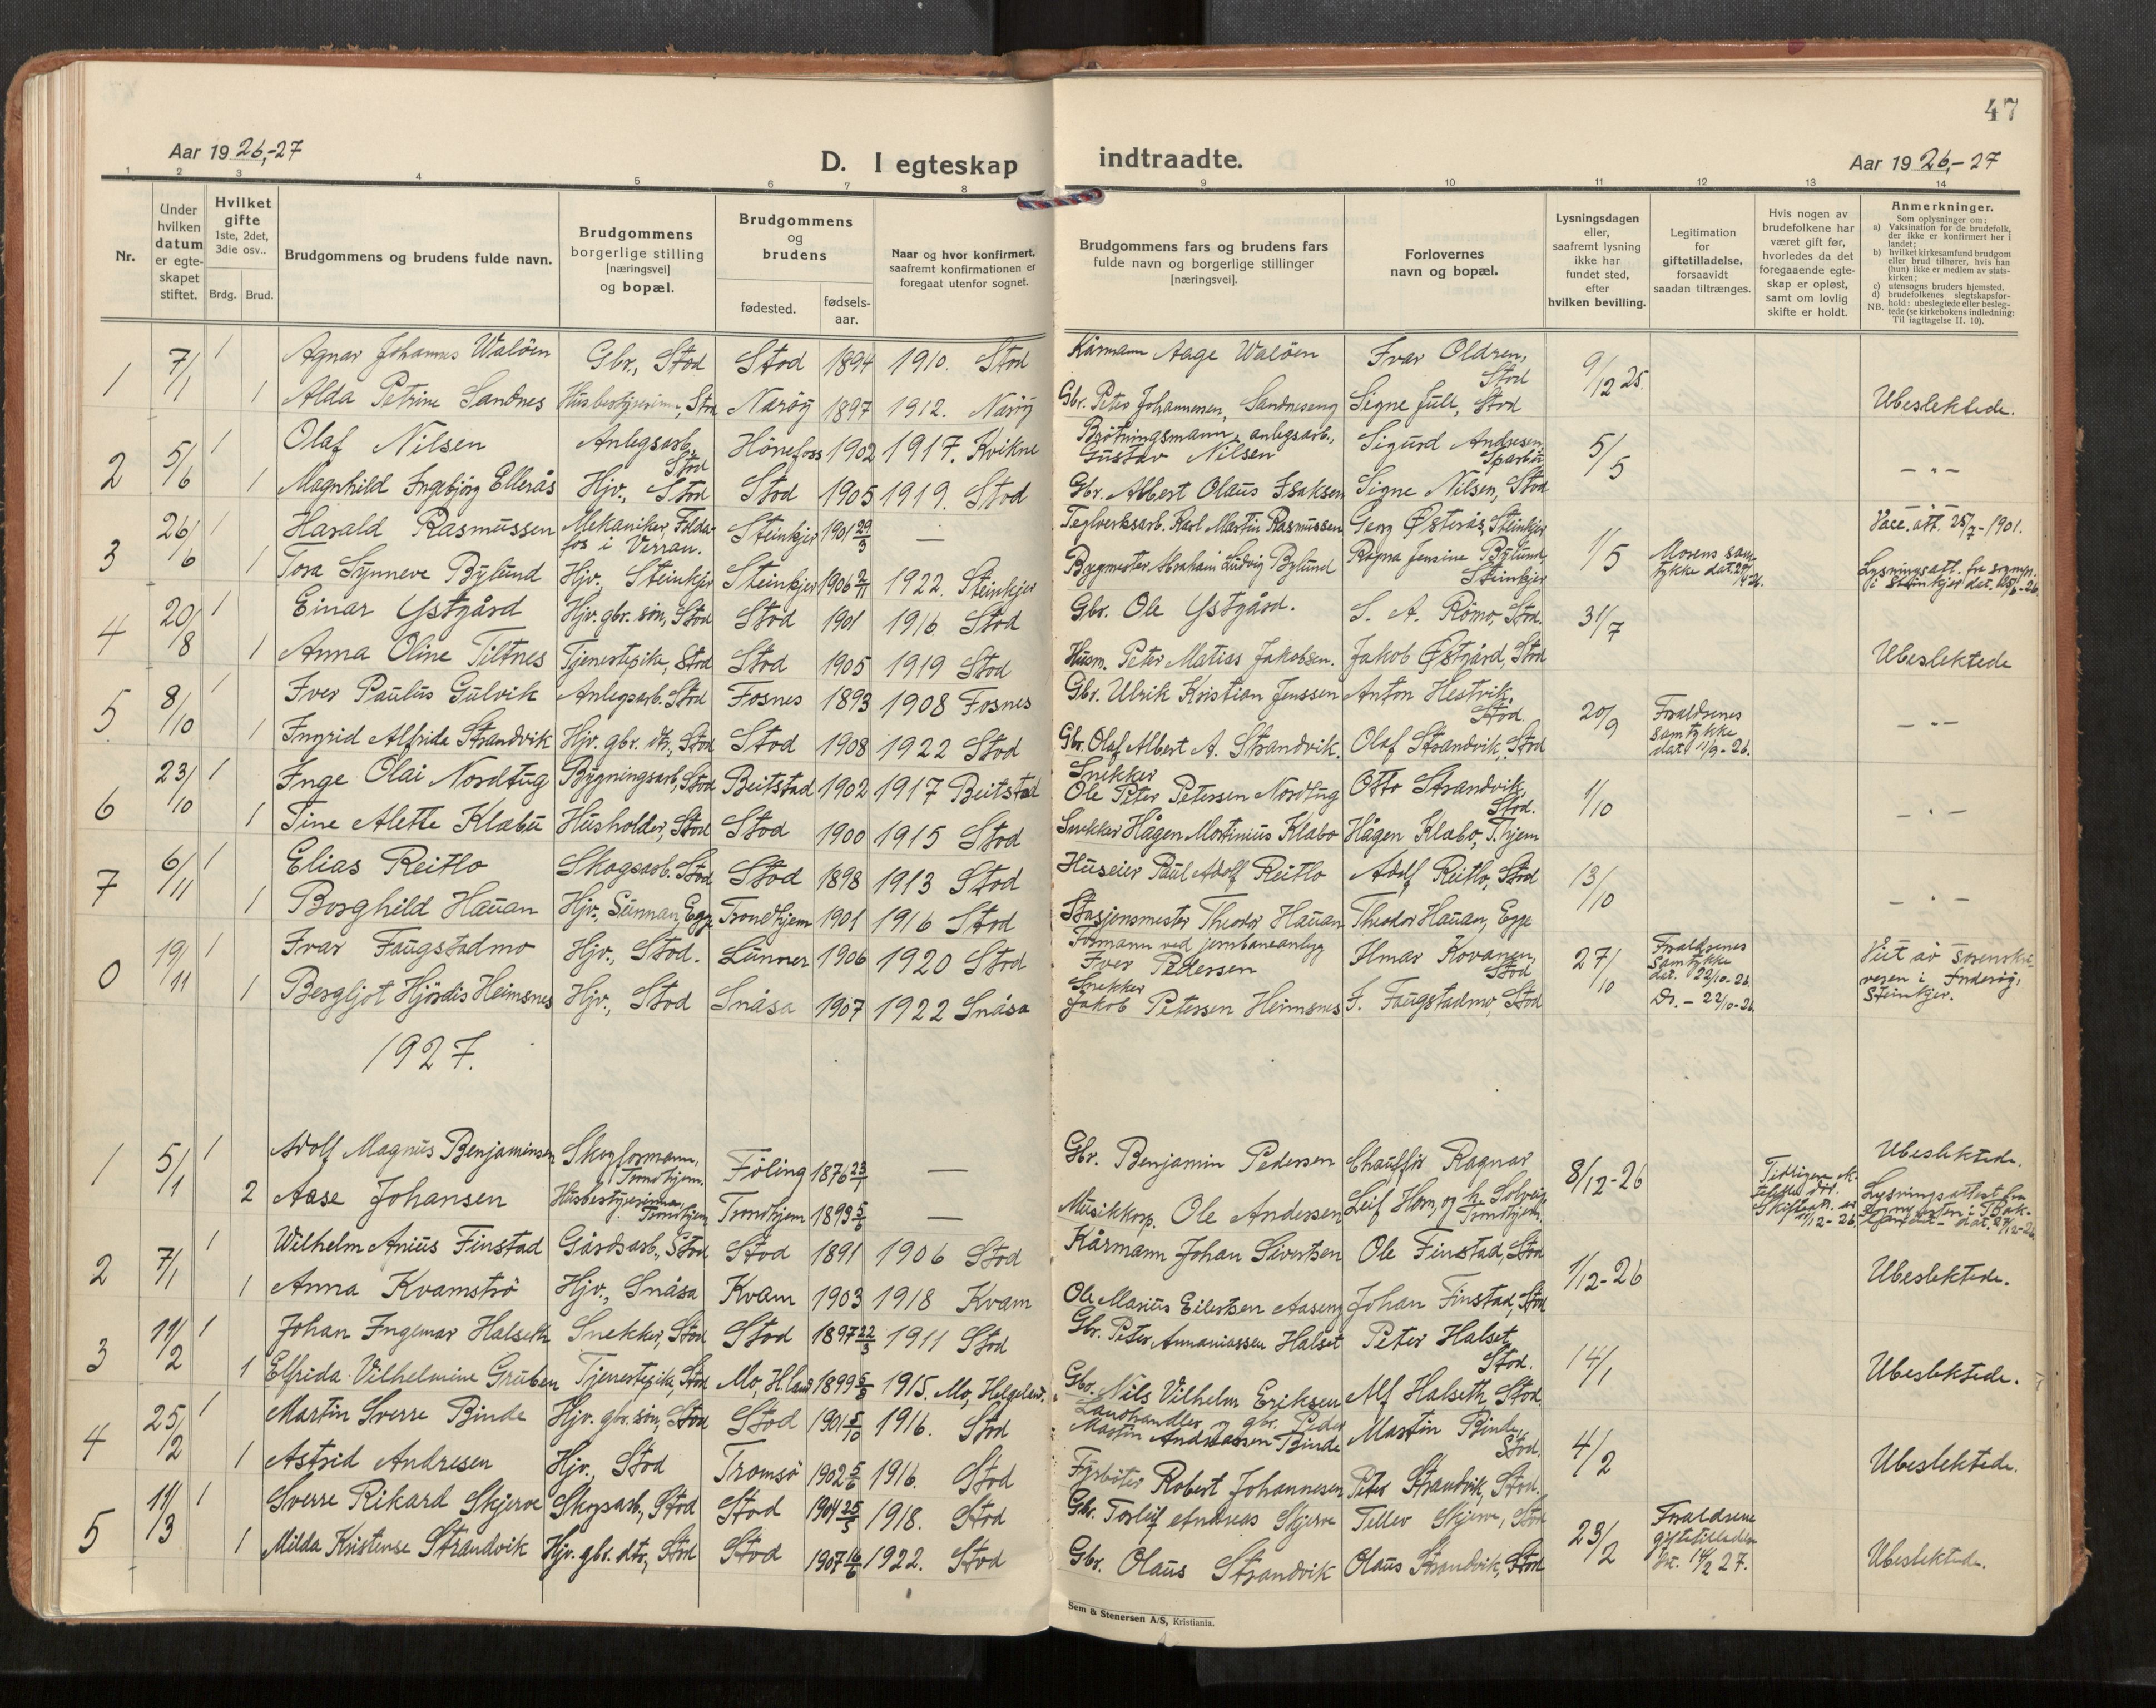 47
Aar 1926,-27
D. I egteskap indtraadte.
Aar 1926,-27
1 2 3 4 5 6 7 8 9 10 11 12 13 14
Nr.
Under hvilken datum er egteskapet stiftet.
Hvilket gifte 1ste, 2det, 3die osv..
Brdg. Brud.
Brudgommens og brudens fulde navn.
Brudgommens borgerlige stilling [næringsvei] og bopæl.
Brudgommens og brudens
fødested. fødsels-aar.
Naar og hvor konfirmert, saafremt konfirmationen er foregaat utenfor sognet.
Brudgommens fars og brudens fars fulde navn og borgerlige stillinger [næringsvei].
Forlovernes navn og bopæl.
Lysningsdagen eller, saafremt lysning ikke har fundet sted, efter hvilken bevilling.
Legitimation for giftetilladelse, forsaavidt saadan tiltrænges.
Hvis nogen av brudefolkene har været gift før, hvorledes da det foregaaende egteskap er opløst, samt om lovlig skifte er holdt.
Anmerkninger.
Som oplysninger om:
a) Vaksination for de brudefolk, der ikke er konfirmert her i landet;
b) hvilket kirkesamfund brudgom eller brud tilhører, hvis han (hun) ikke er medlem av statskirken;
c) utensogns bruders hjemsted.
d) brudefolkenes slegtskapsforhold: ubeslegtede eller beslegtede (se kirkebokens indledning: NB. Til iagttagelse II. 10).
1 7/1 1 Agnar Johannes Waløen Gbr., Stod Stod 1894 1910. Stod Kårmann Aage Waløen Ivar Oldren, Stod 9/12 25.
1 Alda Petrine Sandnes Husbestyrerinne, Stod Nærøy 1897 1912. Nærøy Gbr. Peter Johannesen, Sandneseng Signe Jull, Stod Ubeslektede.
2 5/6 1 Olaf Nilsen Anlegsarb., Stod Hönefoss 1902 1917. Kvikne Brøtningsmann, anlegsarb., Gustav Nilsen Sigurd Andresen, Sparbu 5/5
1 Magnhild Ingebjørg Ellerås Hjv., Stod Stod 1905 1919. Stod Gbr. Albert Olaus Isaksen Signe Nilsen, Stod — " —
3 26/6 1 Harald Rasmussen Mekaniker, Folda- fos i Verran. Steinkjer 1901 29/3 — Teglverksarb. Karl Martin Rasmussen Georg Østerås, Steinkjer 1/5 Vacc. att. 25/7 - 1901.
1 Tora Synneve Bylund Hjv., Steinkjer Steinkjer 1906 2/11 1922. Steinkjer Bygmester Abraham Ludvig Bylund Ragna Jensine Bylund, Steinkjer Morens samtykke dat. Lysningsatt. fra sognepr. i Steinkjer dat.
4 20/8 1 Einar Ystgård Hjv. gbr. søn, Stod Stod 1901 1916. Stod Gbr. Ole Ystgård. S. A. Römo, Stod. 31/7
1 Anna Oline Tiltnes Tjenestepike, Stod Stod 1905 1919 Stod Husm. Peter Matias Jakobsen. Jakob Østgård, Stod Ubeslektede
5 8/10 1 Iver Paulus Gulvik Anlegsarb. Stod Fosnes 1893 1908 Fosnes Gbr. Ulrik Kristian Jenssen Anton Hestvik, Stod 20/9 Foraldrenes samtykke dat. 11/9 - 26.
1 Ingrid Alfrida Strandvik Hjv. gbr. dtr., Stod Stod 1908 1922 Stod Gbr. Olaf Albert A. Strandvik. Olaf Strandvik, Stod — " —
6 23/10 1 Inge Olai Nordtug Bygningsarb., Stod Beitstad 1902 1917 Beitstad Snekker Ole Peter Petersen Nordtug Otto Strandvik, Stod. 1/10
1 Tine Alette Klæbu Husholder, Stod Stod 1900 1915 Stod Snekker Hågen Martinius Klæbo Hågen Klæbo, Thjem — " —
7 6/11 1 Elias Reitlo Skogsarb. Stod Stod 1898 1913 Stod Huseier Paul Adolf Reitlo Adolf Reitlo, Stod 13/10
1 Borghild Hauan Hjv., Sunnan, Egge Trondhjem 1901 1916 Stod Stasjonsmester Theodor Hauan Theodor Hauan, Egge — " —
0 19/11 1 Ivar Faugstadmo Hjv., Stod. Lunner 1906 1920 Stod Formann ved jernbaneanlegg Iver Petersen Ilmar Kovanen, Stod 27/10 Foraldrenes samtykke dat. 22/10-26.
1 Bergljot Hjördis Heimsnes Hjv., Stod Snåsa 1907 1922 Snåsa Snekker Jakob Petersen Heimsnes I. Faugstadmo, Stod Do. - 22/10-26. Viet av sorenskriveren i Inderøy, Steinkjer.
1927.
1 5/1 1 Adolf Magnus Benjaminsen Skogformann, Trondhjem. Föling 1876 23/1 — Gbr. Benjamin Pedersen Chauffør Ragnar 8/12-26 Ubeslektede.
2 Aase Johansen Husbestyrerinne, Trondhjem Trondhjem 1893 5/6 — Musikkorp. Ole Andersen Leif Horn, og h. Solveig Trondhjem. Lysningsattest fra
2 7/1 1 Wilhelm Anius Finstad Gårdsarb., Stod Stod 1891 1906 Stod Kårmann Johan Sivertsen Ole Finstad, Stod 1/12-26
1 Anna Kvamstrø Hjv., Snåsa Kvam 1903 1918 Kvam Ole Marius Eilertsen Aaseng Johan Finstad, Stod Ubeslektede.
3 11/2 1 Johan Ingemar Halseth Snekker, Stod Stod 1897 22/3 1911 Stod Gbr. Peter Annaniassen Halset Peter Halset, Stod. 14/1
1 Elfrida Vilhelmine Gruben Tjenestepike, Stod Mo, H.land 1899 5/8 1915. Mo, Helgeland. Gbr. Nils Vilhelm Eriksen Alf Halseth, Stod Ubeslektede.
4 25/2 1 Martin Sverre Binde Hjv. gbr. søn, Stod Stod 1901 5/10 1916. Stod Landhandler og gbr. Peder Martin Andreassen Binde Martin Binde, Stod. 4/2
1 Astrid Andresen Hjv., Stod Tromsö 1902 5/6 1916. Stod Fyrbøter Robert Johannesen Peter Strandvik, Stod. Ubeslektede.
5 11/3 1 Sverre Rikard Skjerve Skogsarb., Stod Stod 1904 25/5 1918. Stod Gbr. Torleif Andreas Skjerve Tellev Skjerve, Stod 23/2 Foraldrene dat. 14/2 27.
1 Milda Kristense Strandvik Hjv. gbr. dtr., Stod Stod 1907 16/6 1922. Stod Gbr. Olaus Strandvik Olaus Strandvik, Stod Ubeslektede.
Sem & Stenersen A/S, Kristiania.